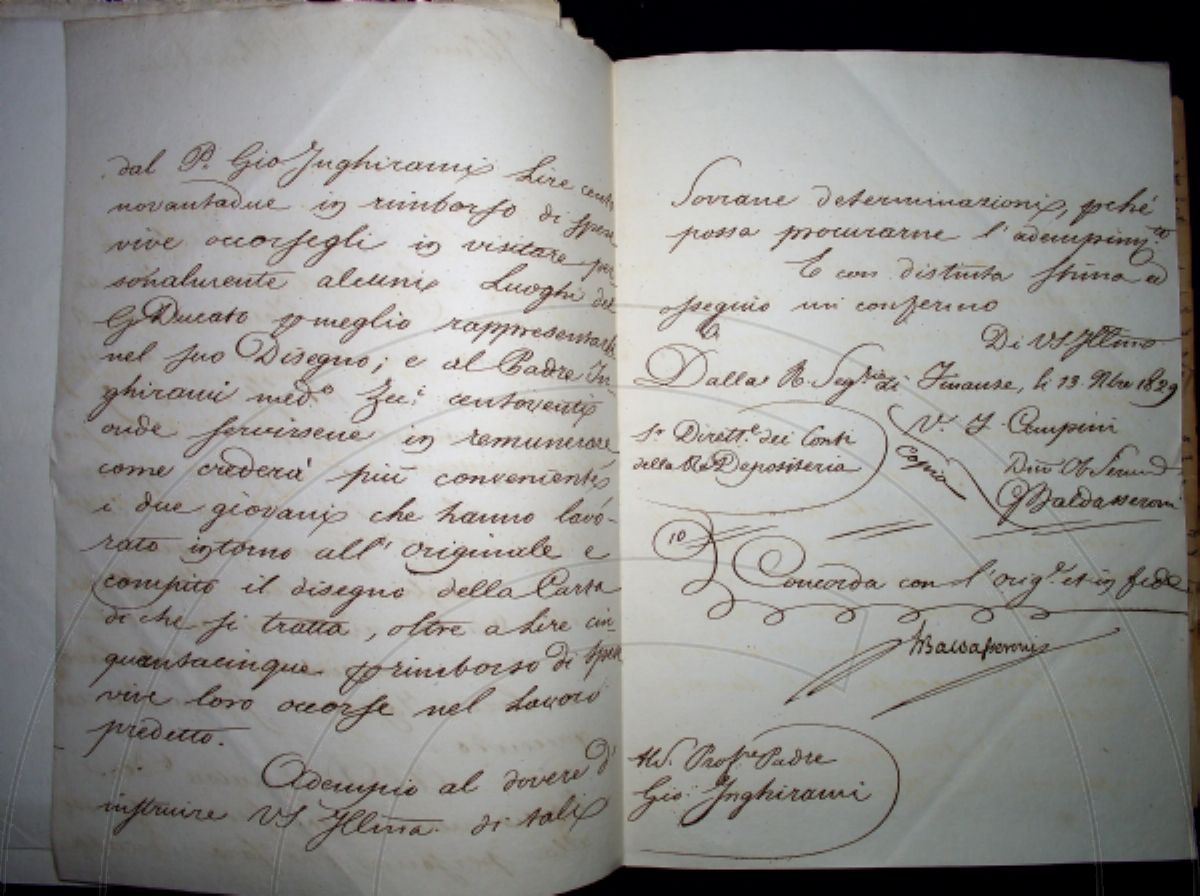 dal P. Gio Inghirami Lire cento
novantadue in rimborso di spese
vive occorsegli in visitare per
sonalmente alcuni Luoghi del
G Ducato p meglio rappresentarli
nel suo Disegno; e al Padre In
ghirami med.o Zec.i centoventi
onde servirsene in remunerare
come crederà più conveniente
i due giovani che hanno lavo-
rato intorno all' originale e
compito il disegno della Carta
di che si tratta, oltre a Lire cin
quantacinque p rimborso di spese
vive loro occorse nel Lavoro
predetto.
Adempio al dovere d'
instruire VS Illma. di tali
Sovrane determinazioni, pché
possa procurarne l'adempim.to
E con distinta stima ed
ossequio mi confermo
Di VS Illma
Dalla R. Seg.ria di Finanze, li 13. 9bre 1829
S.r Dirett.e dei Conti
della R. Depositeria
Copia
V. F. Cempini
Dmo Ob Serv
G Baldasseroni
10
Concorda con l'orig.e et in fede
Baldasseroni
Al S. Prof.re Padre
Gio: Inghirami